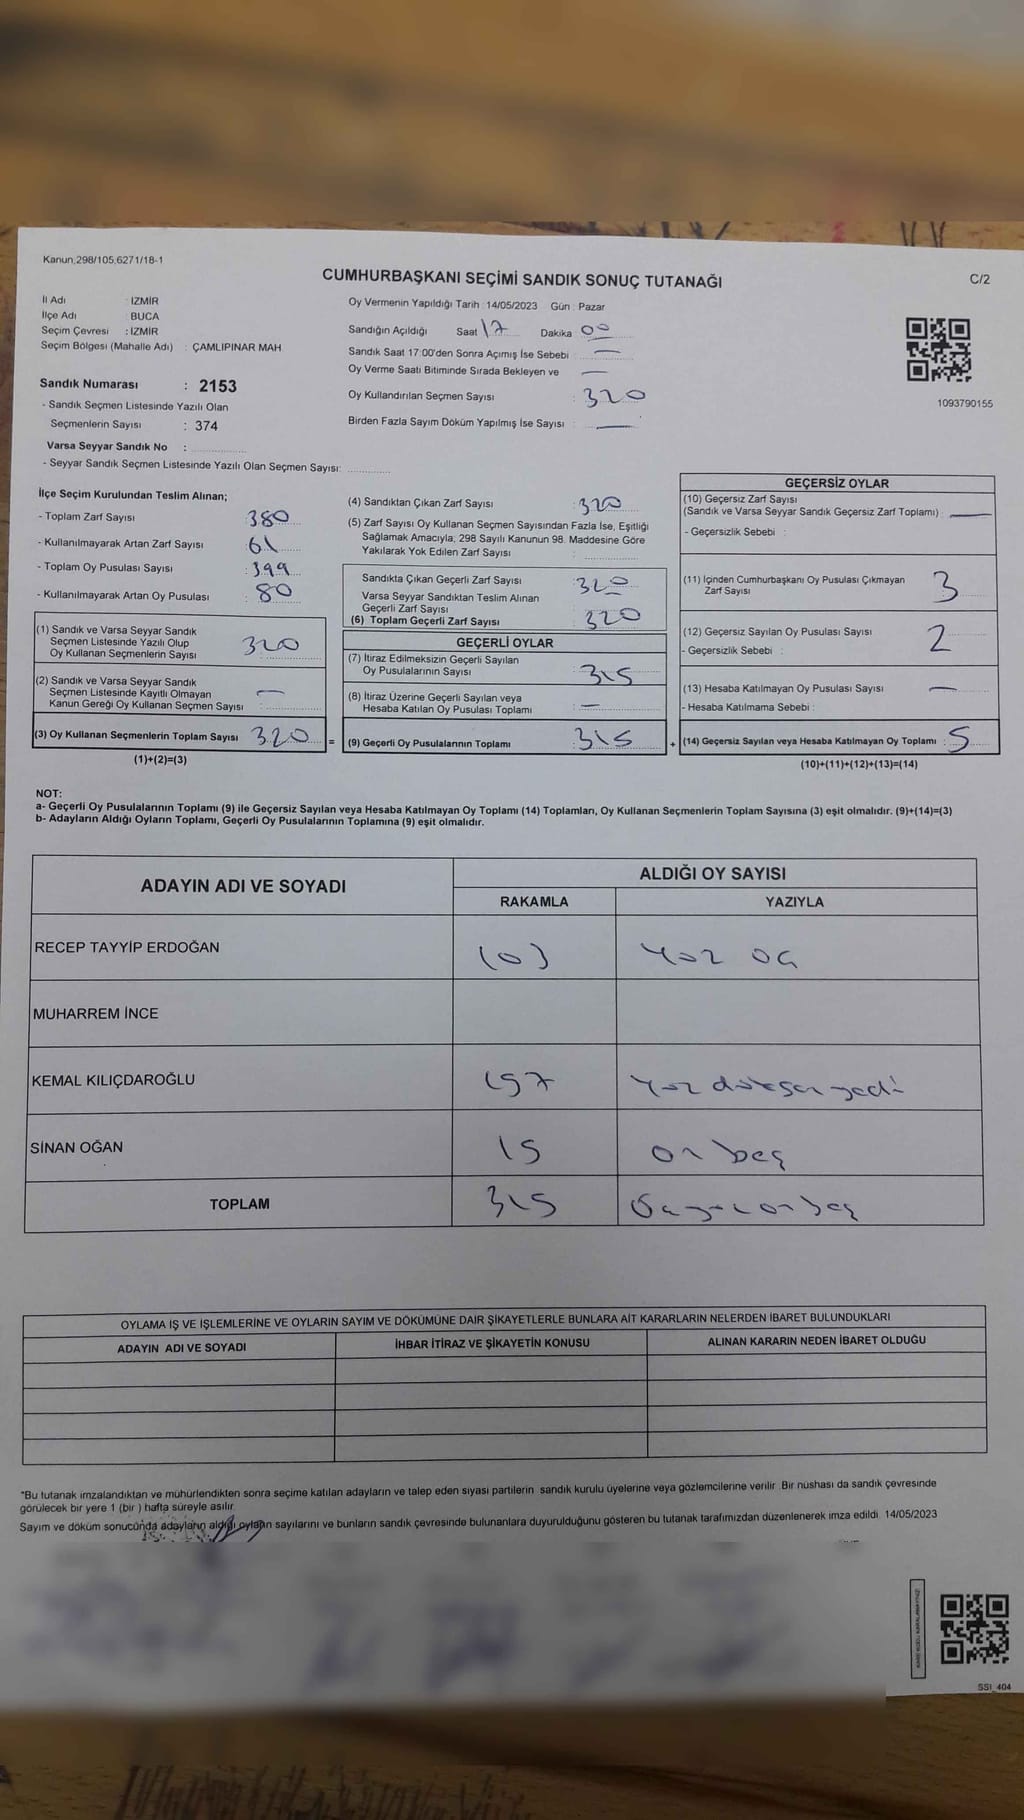 Kanun,298/105,6271/18-1
CUMHURBAŞKANI SEÇİMİ SANDIK SONUÇ TUTANAĞI
C/2
İl Adı : İZMİR
İlçe Adı : BUCA
Seçim Çevresi : İZMİR
Seçim Bölgesi (Mahalle Adı) : ÇAMLIPINAR MAH.
Sandık Numarası : 2153
- Sandık Seçmen Listesinde Yazılı Olan
Seçmenlerin Sayısı : 374
Varsa Seyyar Sandık No :
- Seyyar Sandık Seçmen Listesinde Yazılı Olan Seçmen Sayısı:
Oy Vermenin Yapıldığı Tarih : 14/05/2023 Gün : Pazar
Sandığın Açıldığı Saat 17 Dakika 00
Sandık Saat 17:00'den Sonra Açımış İse Sebebi : —
Oy Verme Saati Bitiminde Sırada Bekleyen ve —
Oy Kullandırılan Seçmen Sayısı : 320
Birden Fazla Sayım Döküm Yapılmış İse Sayısı : —
1093790155
İlçe Seçim Kurulundan Teslim Alınan;
- Toplam Zarf Sayısı : 380
- Kullanılmayarak Artan Zarf Sayısı : 61
- Toplam Oy Pusulası Sayısı : 399
- Kullanılmayarak Artan Oy Pusulası : 80
(1) Sandık ve Varsa Seyyar Sandık
Seçmen Listesinde Yazılı Olup
Oy Kullanan Seçmenlerin Sayısı 320
(2) Sandık ve Varsa Seyyar Sandık
Seçmen Listesinde Kayıtlı Olmayan
Kanun Gereği Oy Kullanan Seçmen Sayısı : —
(3) Oy Kullanan Seçmenlerin Toplam Sayısı 320 =
(1)+(2)=(3)
(4) Sandıktan Çıkan Zarf Sayısı : 320
(5) Zarf Sayısı Oy Kullanan Seçmen Sayısından Fazla İse, Eşitliği
Sağlamak Amacıyla, 298 Sayılı Kanunun 98. Maddesine Göre
Yakılarak Yok Edilen Zarf Sayısı :
Sandıkta Çıkan Geçerli Zarf Sayısı : 320
Varsa Seyyar Sandıktan Teslim Alınan
Geçerli Zarf Sayısı
(6) Toplam Geçerli Zarf Sayısı : 320
GEÇERLİ OYLAR
(7) İtiraz Edilmeksizin Geçerli Sayılan
Oy Pusulalarının Sayısı : 315
(8) İtiraz Üzerine Geçerli Sayılan veya
Hesaba Katılan Oy Pusulası Toplamı : —
(9) Geçerli Oy Pusulalarının Toplamı : 315 +
GEÇERSİZ OYLAR
(10) Geçersiz Zarf Sayısı
(Sandık ve Varsa Seyyar Sandık Geçersiz Zarf Toplamı) : —
- Geçersizlik Sebebi :
(11) İçinden Cumhurbaşkanı Oy Pusulası Çıkmayan
Zarf Sayısı : 3
(12) Geçersiz Sayılan Oy Pusulası Sayısı : 2
- Geçersizlik Sebebi :
(13) Hesaba Katılmayan Oy Pusulası Sayısı : —
- Hesaba Katılmama Sebebi :
(14) Geçersiz Sayılan veya Hesaba Katılmayan Oy Toplamı : 5
(10)+(11)+(12)+(13)=(14)
NOT:
a- Geçerli Oy Pusulalarının Toplamı (9) ile Geçersiz Sayılan veya Hesaba Katılmayan Oy Toplamı (14) Toplamları, Oy Kullanan Seçmenlerin Toplam Sayısına (3) eşit olmalıdır. (9)+(14)=(3)
b- Adayların Aldığı Oyların Toplamı, Geçerli Oy Pusulalarının Toplamına (9) eşit olmalıdır.
ADAYIN ADI VE SOYADI
ALDIĞI OY SAYISI
RAKAMLA YAZIYLA
RECEP TAYYİP ERDOĞAN 103 yüz
MUHARREM İNCE
KEMAL KILIÇDAROĞLU 197 yüz doksan yedi
SİNAN OĞAN 15 on beş
TOPLAM 315 on beş
OYLAMA İŞ VE İŞLEMLERİNE VE OYLARIN SAYIM VE DÖKÜMÜNE DAİR ŞİKAYETLERLE BUNLARA AİT KARARLARIN NELERDEN İBARET BULUNDUKLARI
ADAYIN ADI VE SOYADI İHBAR İTİRAZ VE ŞİKAYETİN KONUSU ALINAN KARARIN NEDEN İBARET OLDUĞU
*Bu tutanak imzalandıktan ve mühürlendikten sonra seçime katılan adayların ve talep eden siyasi partilerin sandık kurulu üyelerine veya gözlemcilerine verilir. Bir nüshası da sandık çevresinde
görülecek bir yere 1 (bir ) hafta süreyle asılır.
Sayım ve döküm sonucunda adayların aldığı oyların sayılarını ve bunların sandık çevresinde bulunanlara duyurulduğunu gösteren bu tutanak tarafımızdan düzenlenerek imza edildi. 14/05/2023
SSI_404